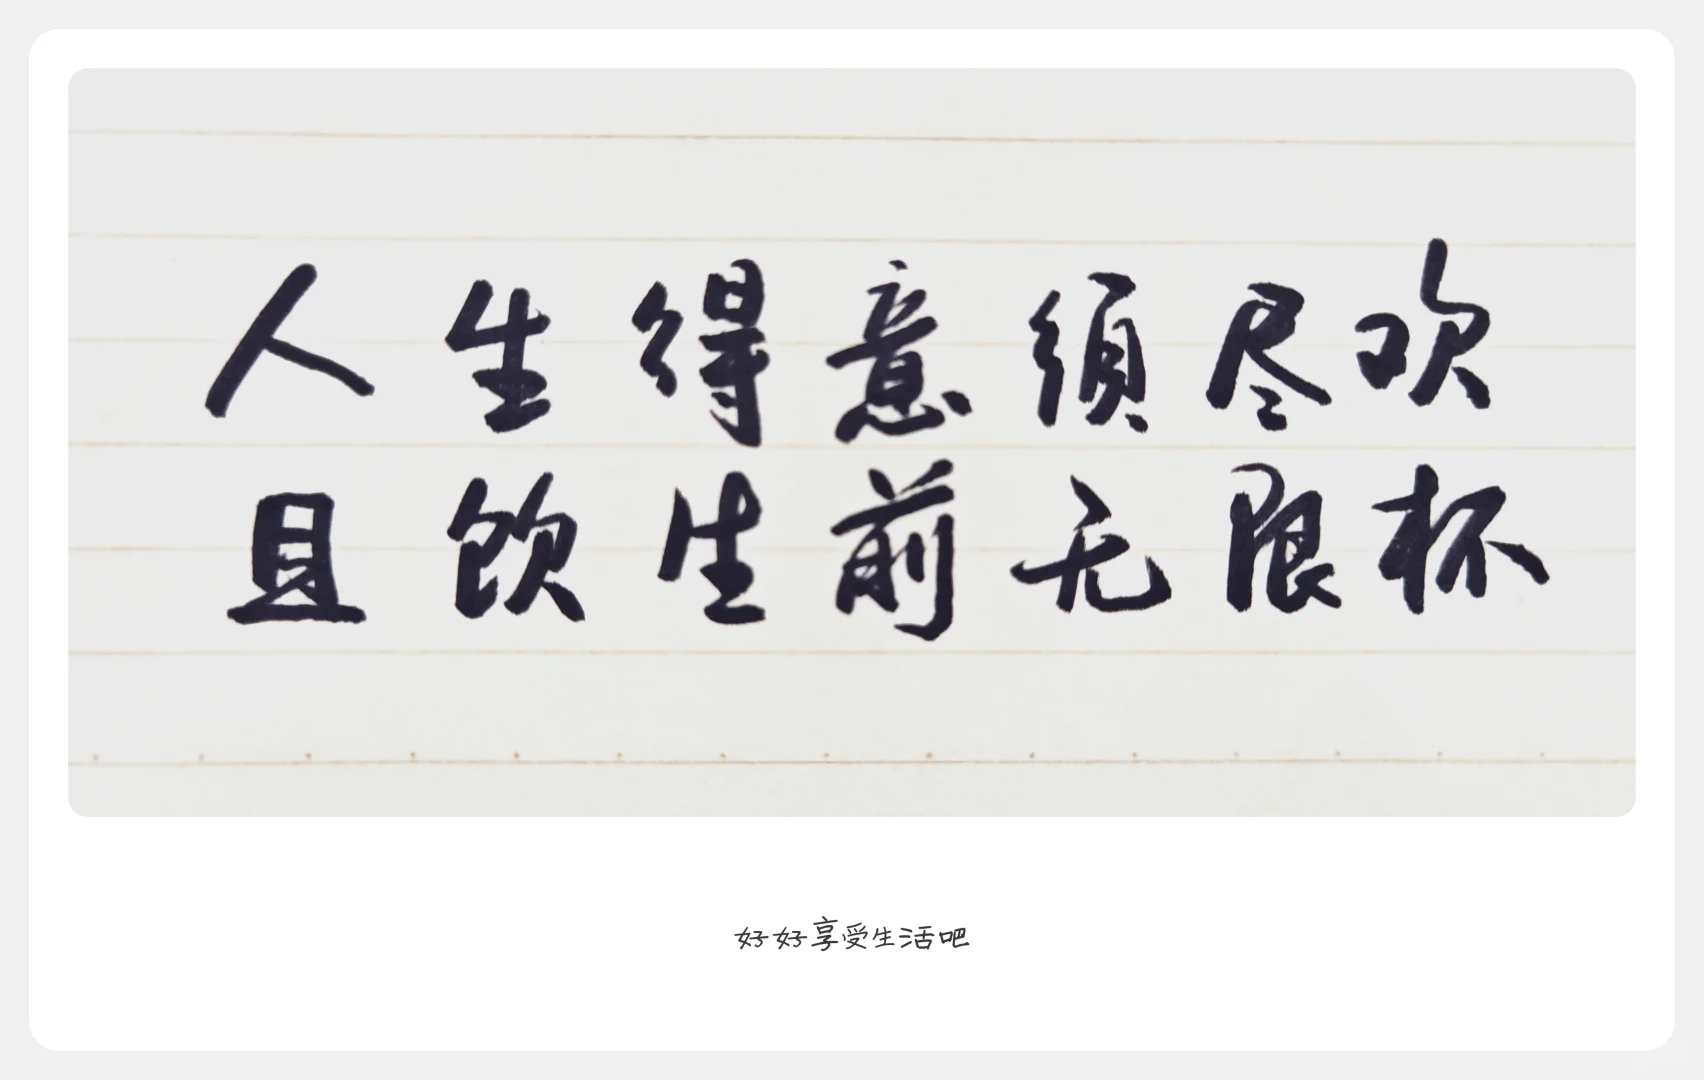 人生得意须尽欢
且饮生前无限杯
好好享受生活吧